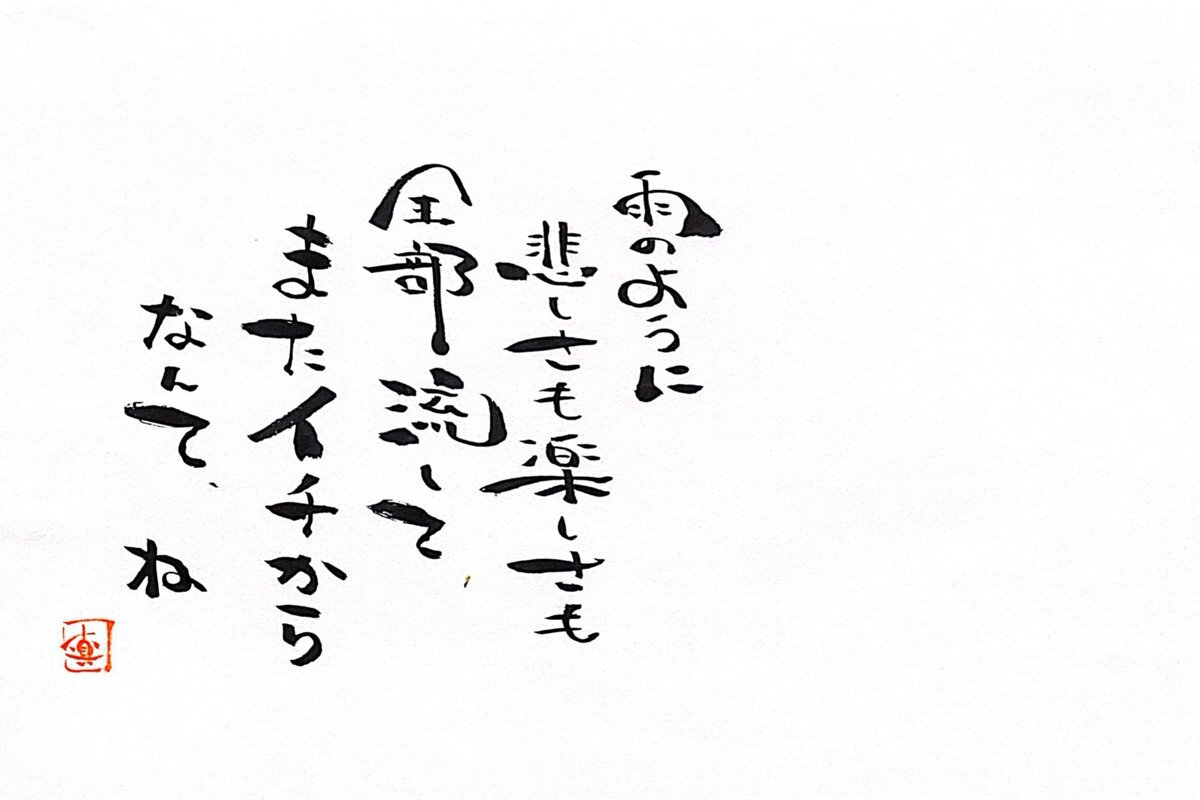 雨のように
悲しさも楽しさも
全部流して
またイチから
なんて、ね